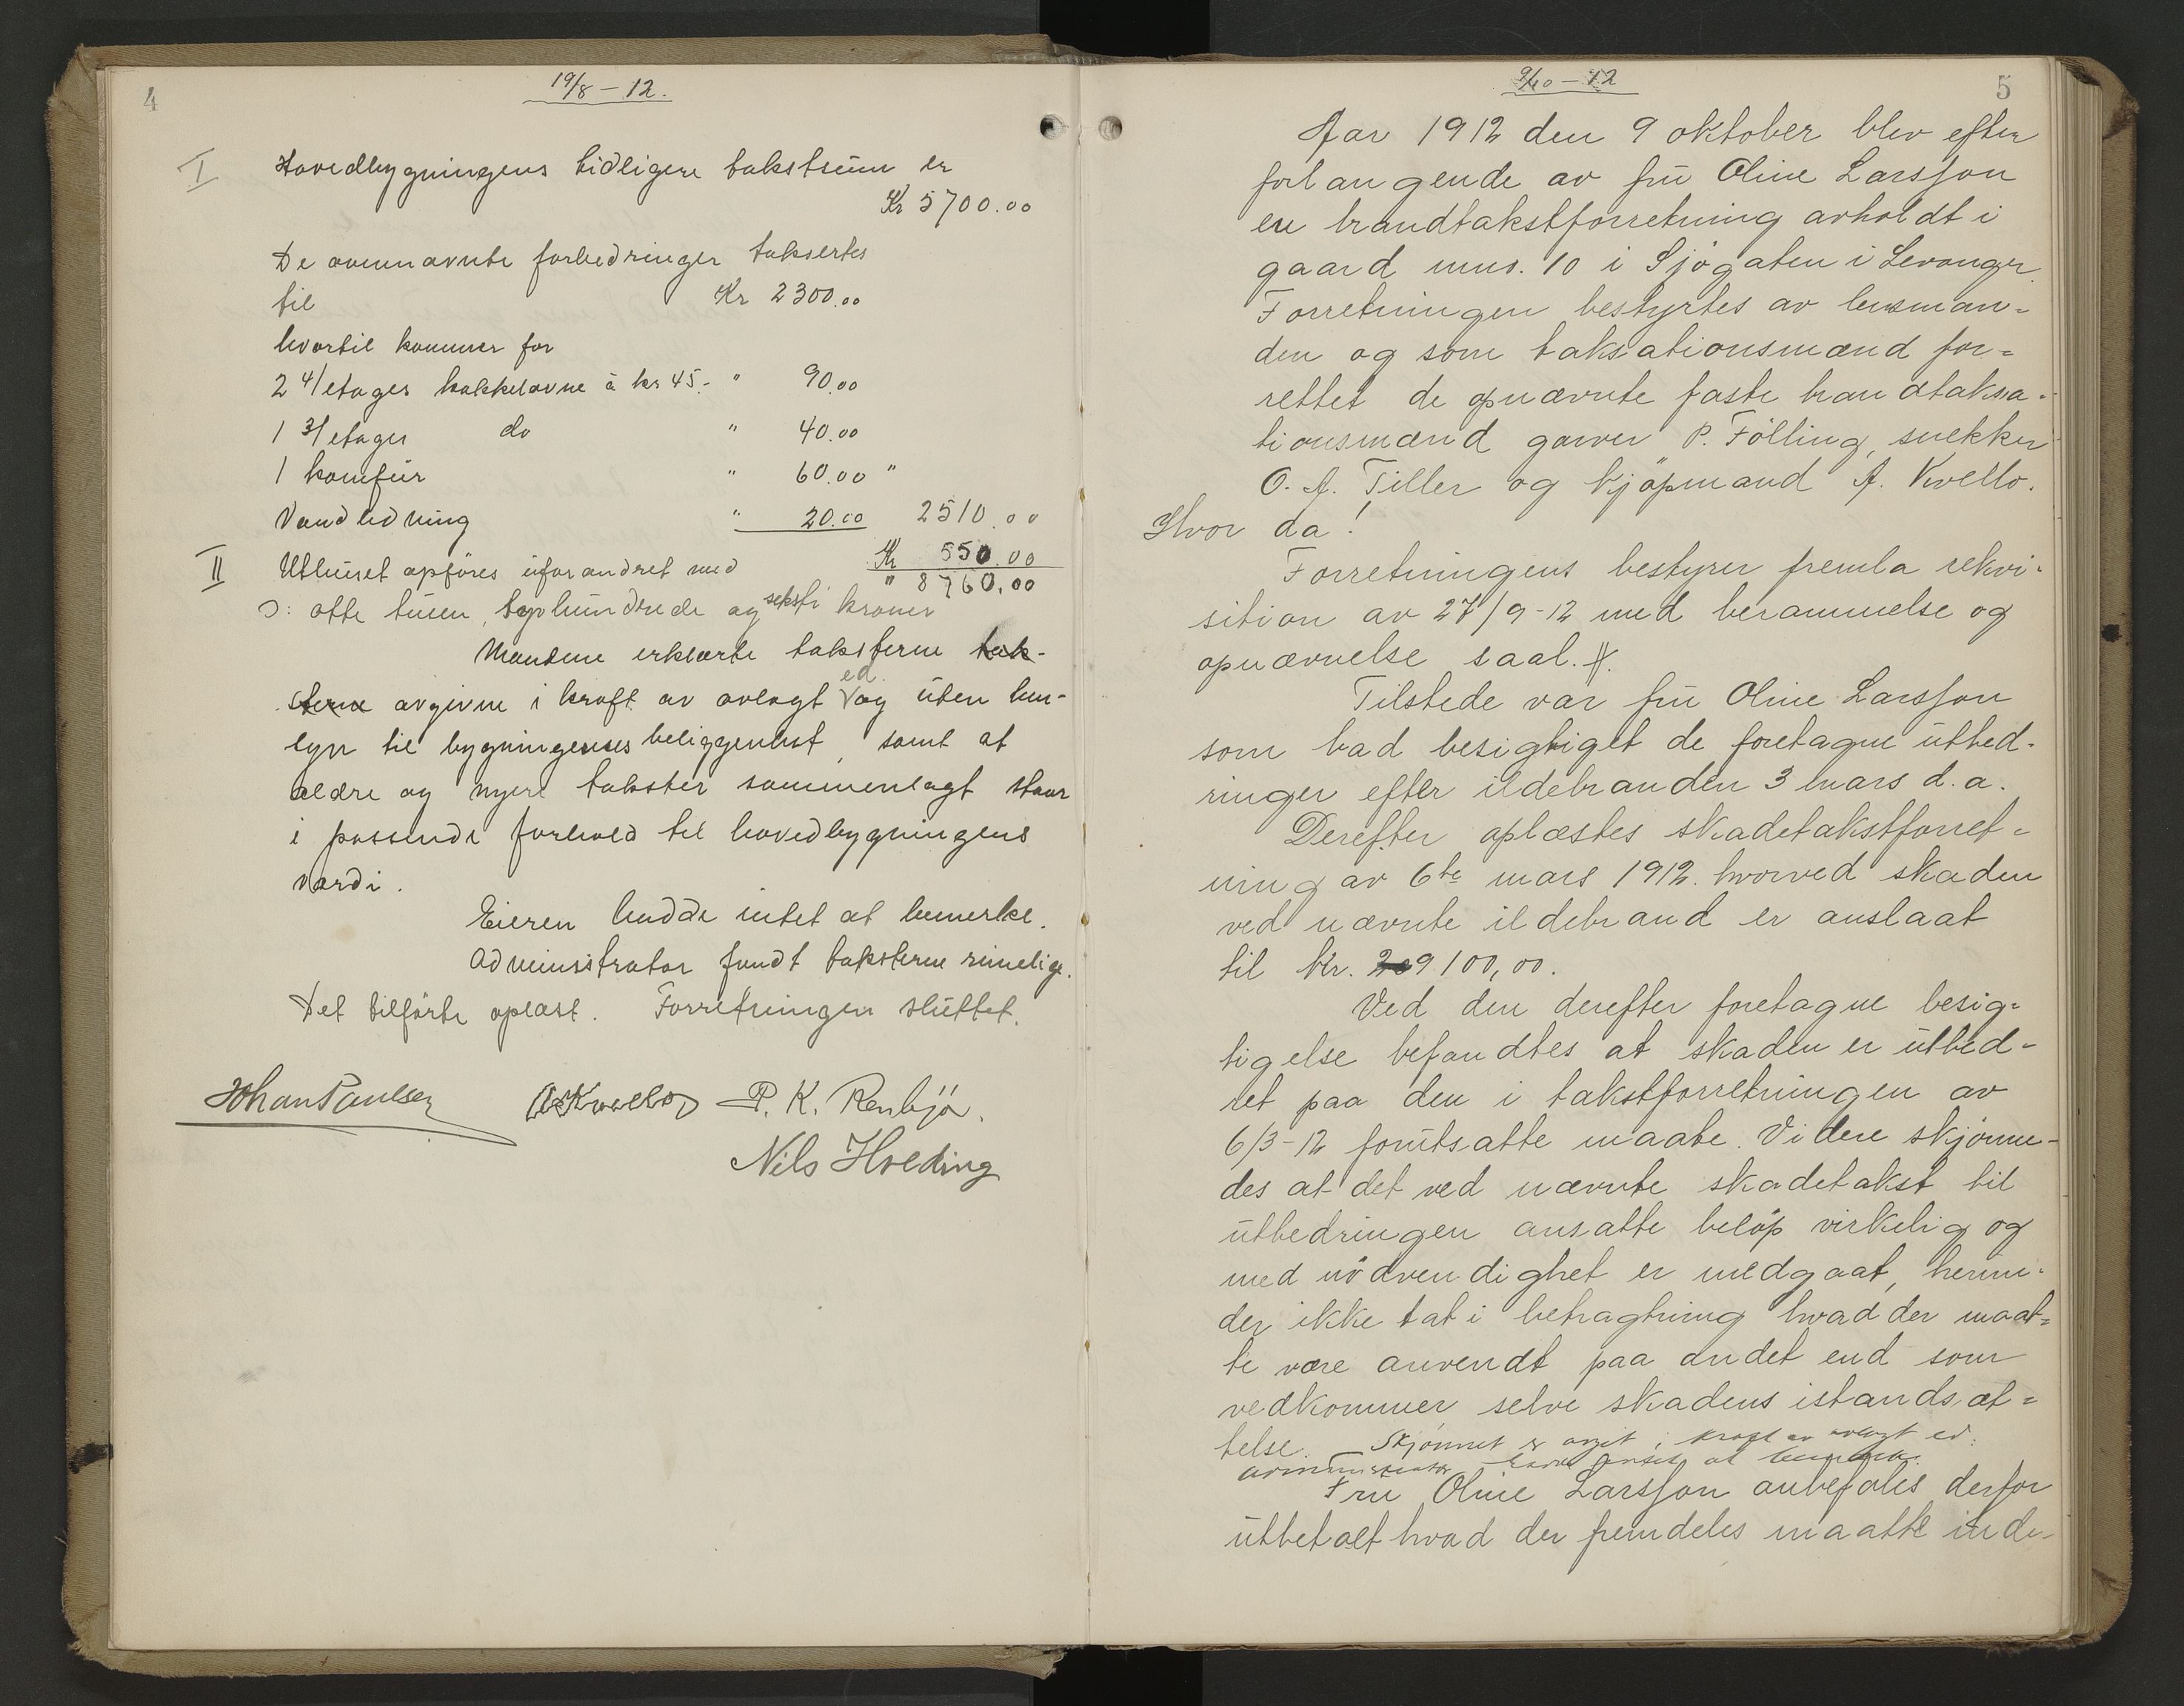 4
19/8 – 12.
I Hovedbygningens tidligere takstsum er
Kr 5700.00
De ovennævnte forbedringer takseres
til Kr 2300.00
hvortil kommer for
2 4/etages kakkelovne à kr 45.- " 90.00
1 3/etages do " 40.00
1 komfür " 60.00 "
Vandledning " 20.00 2510.00
II Uthuset opføres uforandret med Kr 550.00
" 8760.00
ɔ: otte tusen, syvhundrede og seksti kroner
Mændene erklærte taksterne tak-
sterne avgivne i kraft av avlagt ed og uten hen-
syn til bygningenes beliggenhet, samt at
ældre og nyere takster sammenlagt staar
i passende forhold til hovedbygningens
værdi.
Eieren hadde intet at bemerke.
Administrator fandt taksterne rimelige.
Det tilförte oplæst. Forretningen sluttet.
Johan Paulsen A. Kvello P. K. Renbjör.
Nils Holding
9/10 – 12
5
Aar 1912 den 9 oktober blev efter
forlangende av frü Oline Larsson
en brandtakstforretning avholdt i
gaard mno. 10 i Sjögaten i Levanger.
Forretningen bestyrtes av lensman-
den og som taksationsmænd for-
rettet de opnævnte faste brandtaksa-
tionsmænd garver P. Fölling, snekker
O. A. Tiller og kjöpmand A. Kvello.
Hvor da!
Forretningens bestyrer fremla rekvi-
sition av 27/9-12 med berammelse og
opnævnelse saal. #.
Tilstede var frü Oline Larsson
som bad besigtiget de foretagne ütbed-
ringer efter ildebranden 3 mars d. a.
Derefter oplæstes skadetakstforret-
ning av 6te mars 1912. hvorved skaden
ved nævnte ildebrand er anslaat
til Kr. 209100,00.
Ved den derefter foretagne besig-
tigelse befandtes at skaden er ütbed-
ret paa den i takstforretningen av
6/3-12 forütsatte maate. Videre skjønne-
des at det ved nævnte skadetakst til
ütbedringen ansatte belöp virkelig og
med nödvendighet er medgaat, herün-
der ikke tat i betragtning hvad der maat-
te være anvendt paa andet end som
vedkommer selve skadens istandsæt-
telse. Skjønnet er avgit i kraft av avlagt ed.
Administrator hadde intet at bemerke.
Frü Oline Larsson anbefales derfor
ütbetalt hvad der fremdeles maatte inde-